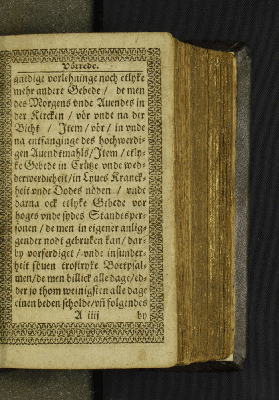 Vörrede.
gnedige vorlehninge noch etlyke
mehr andere Gebede / de men
des Morgens vnde Auendes in
der Kercken / vör vnde na der
Bicht / Jtem / vör / in vnde
na entfanginge des hochwerdi-
gen Auendtmahls / Jtem / etly-
ke Gebede in Crütze vnde wed-
derwerdicheit / in Lyues Kranck-
heit vnde Dodes nöden / vnde
darna ock etlyke Gebede vor
hoges vnde sydes Standesper-
sonen / de men in eigener anlig-
gender nodt gebruken kan / dar-
by vorferdiget / vnde insunder-
heit söuen trostryke Boetpsal-
men / de men billick alle dage / ed-
der jo thom weinigsten alle dage
einen beden scholde / vn̄ folgendes
A iiij by